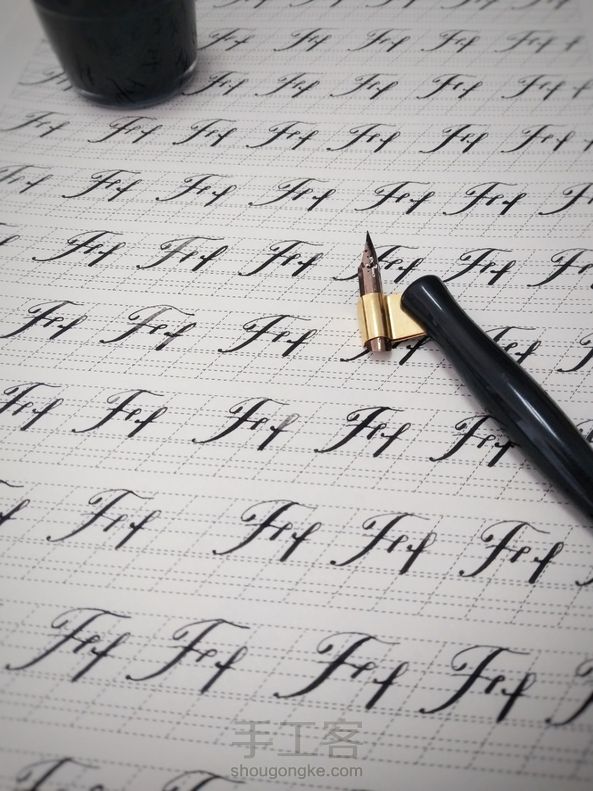 Ff Ff Ff Ff Ff
Ff Ff Ff Ff Ff Ff
Ff Ff Ff Ff Ff Ff Ff
Ff Ff Ff Ff Ff Ff
Ff Ff Ff Ff Ff
Ff Ff Ff Ff
Ff Ff Ff Ff Ff
Ff Ff Ff Ff
Ff Ff Ff Ff
手工客
shougongke.com